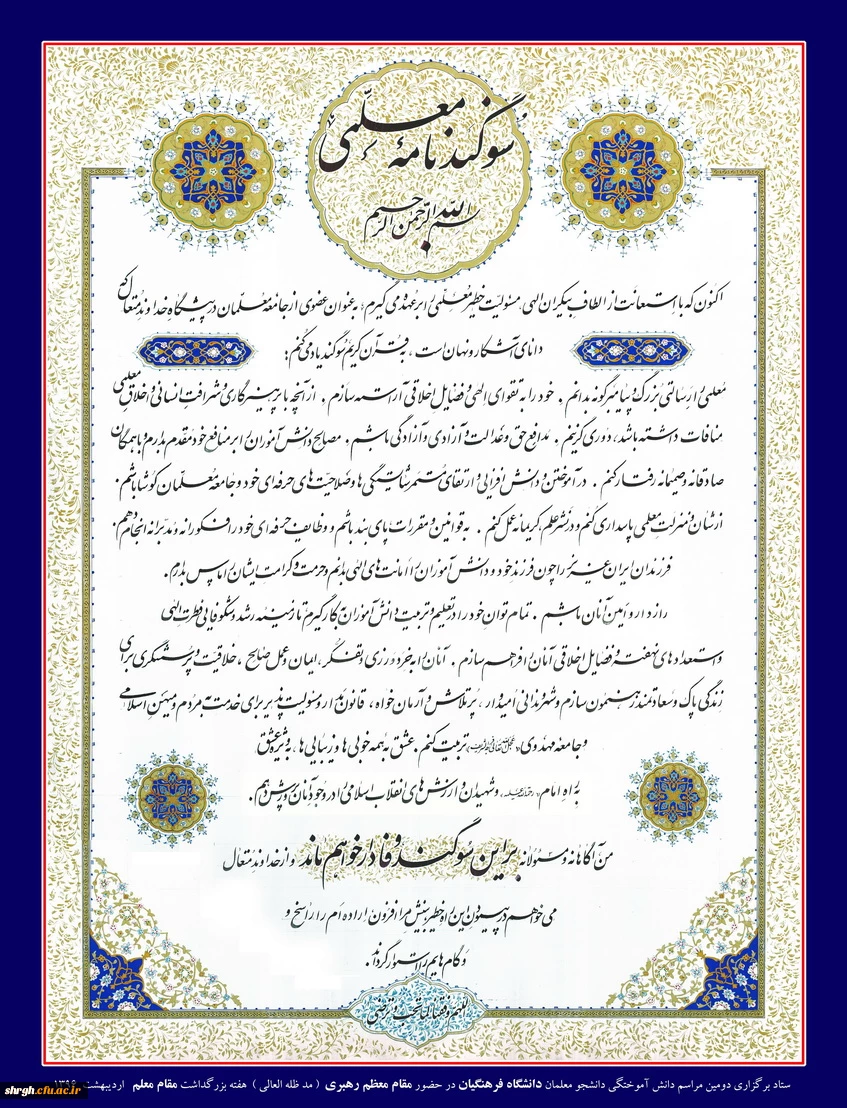 سوگندنامهٔ معلّمی
بسم الله الرحمن الرحیم
اکنون که با استعانت از الطاف بیکران الهی، مسئولیت خطیر معلّمی را برعهده می گیرم؛ به عنوان عضوی از جامعه معلمان در پیشگاه خداوند متعال که
دانای آشکار و نهان است ، به قرآن کریم سوگند یاد می کنم:
معلمی را رسالتی بزرگ و پیامبرگونه بدانم . خود را به تقوای الهی و فضایل اخلاقی آراسته سازم . از آنچه با پرهیزگاری و شرافت انسانی و اخلاق معلمی
منافات داشته باشد، دوری گزینم . مدافع حق و عدالت و آزادی و آزادگی باشم . مصالح دانش آموزان را بر منافع خود مقدم بدارم و با همگان
صادقانه و صمیمانه رفتار کنم . در آموختن و دانش افزایی و ارتقای مستمر شایستگی ها و صلاحیت های حرفه ای خود و جامعه معلمان کوشا باشم .
از شأن و منزلت معلمی پاسداری کنم و در نشر علم، کریمانه عمل کنم . به قوانین و مقررات پای بند باشم و وظایف حرفه ای خود را فکورانه و مدبرانه انجام دهم .
فرزندان ایران عزیز را چون فرزند خود و دانش آموزان را امانت های الهی بدانم و حرمت و کرامت ایشان را پاس بدارم .
رازدار و امین آنان باشم . تمام توان خود را در تعلیم و تربیت دانش آموزان به کار گیرم تا زمینه رشد و شکوفایی فطرت الهی
و استعدادهای نهفته و فضایل اخلاقی آنان را فراهم سازم . آنان را به خردورزی و تفکر ، ایمان و عمل صالح ، خلاقیت و پرسشگری برای
زندگی پاک و سعادتمند رهنمون سازم و شهروندانی امیدوار ، پرتلاش و آرمان خواه ، قانون مدار و مسئولیت پذیر برای خدمت به مردم و میهن اسلامی
و جامعه مهدوی (عجل الله تعالی فرجه الشریف) تربیت کنم . عشق به همه خوبی ها و زیبایی ها ، به ویژه عشق
به راه امام (رحمة الله علیه) و شهیدان و ارزش های انقلاب اسلامی را در وجود آنان پرورش دهم .
من آگاهانه و مسئولانه بر این سوگند وفادار خواهم ماند و از خداوند متعال
می خواهم در پیمودن این راه خطیر بینش مرا افزون، اراده ام را راسخ و
و گام هایم را استوار گرداند.
اللهم وفقنا لما تحب و ترضی
ستاد برگزاری دومین مراسم دانش آموختگی دانشجو معلمان دانشگاه فرهنگیان در حضور مقام معظم رهبری ( مد ظله العالی ) هفته بزرگداشت مقام معلم اردیبهشت ۱۳۹۶
shrgh.cfu.ac.ir